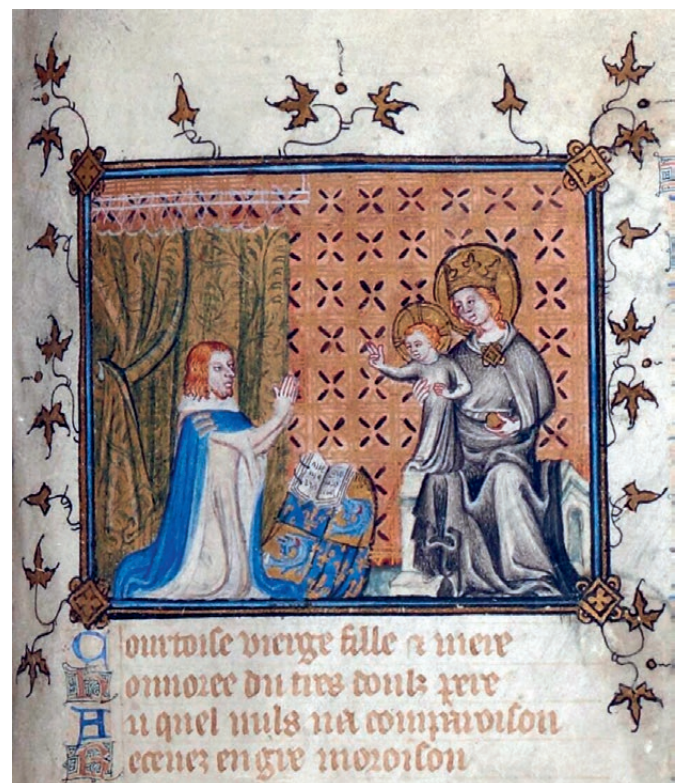 Courtoise vierge fille & mere
Honnoree du tres doulz pere
Au quel nuls na comparoison
Recevez en gre moroison